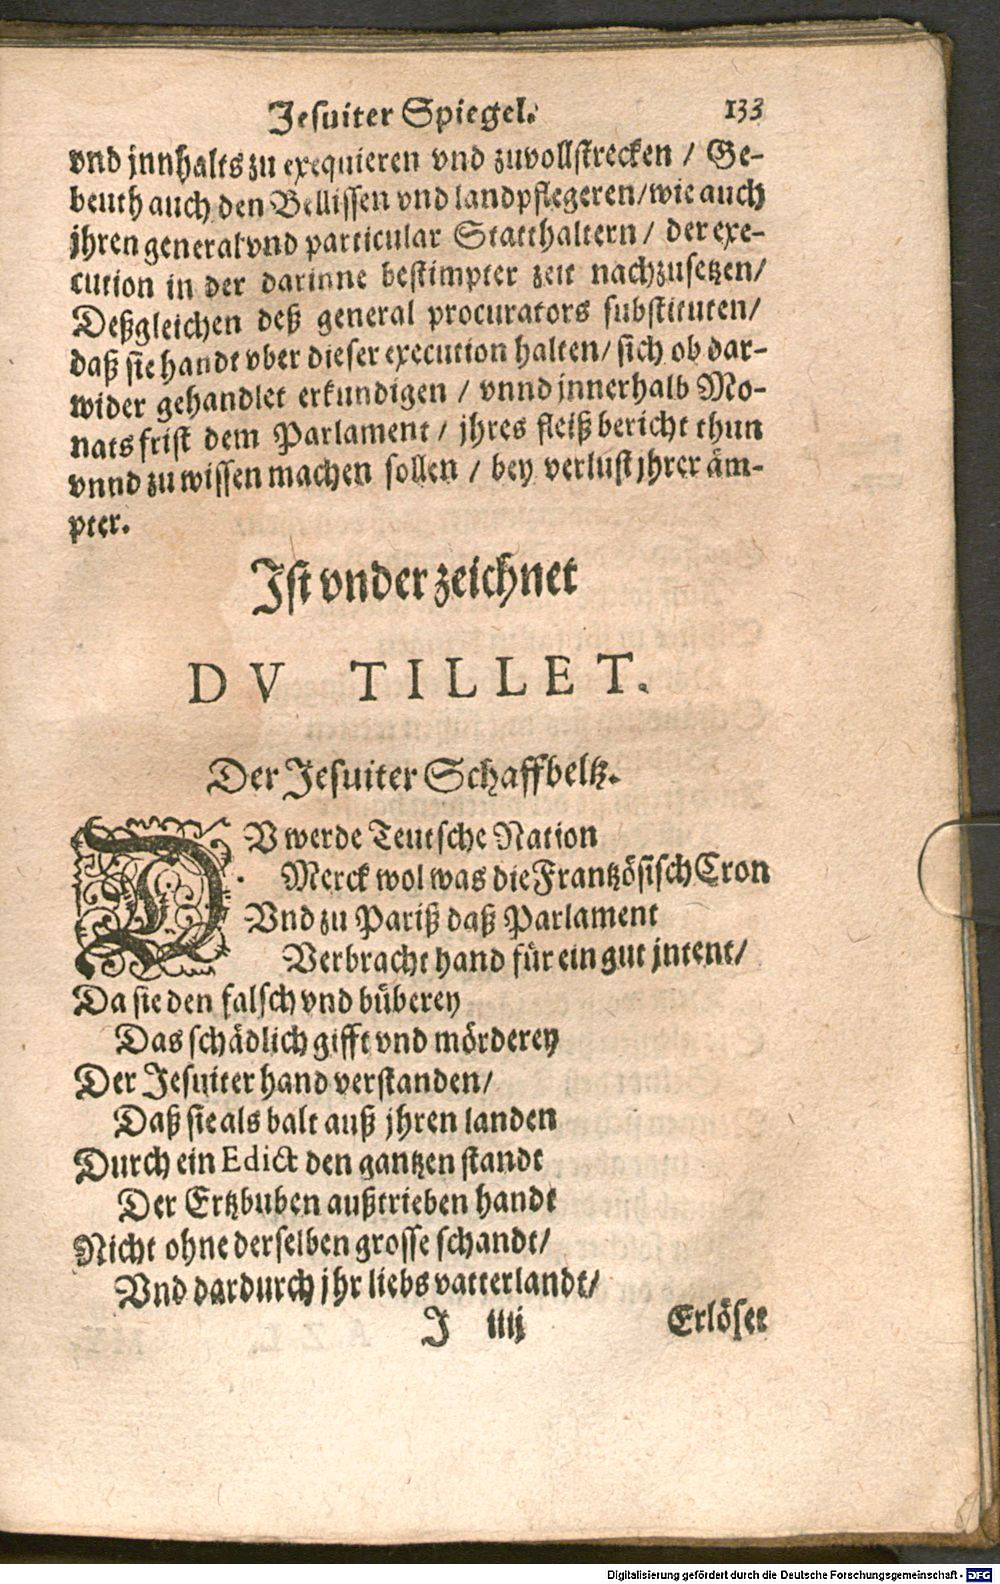 Jesuiter Spiegel. 133
vnd jnnhalts zu exequieren vnd zuvollstrecken / Ge-
beuth auch den Bellissen vnd landpflegeren/wie auch
jhren general vnd particular Statthaltern / der exe-
cution in der darinne bestimpter zeit nachzusetzen/
Deßgleichen deß general procurators substituten/
daß sie handt vber dieser execution halten/ sich ob dar-
wider gehandlet erkundigen / vnnd jnnerhalb Mo-
nats frist dem Parlament / jhres fleiß bericht thun
vnnd zu wissen machen sollen / bey verlust jhrer äm-
pter.
Jst vnderzeichnet
DV TILLET.
Der Jesuiter Schaffbeltz.
DV werde Teutsche Nation
Merck wol was die Frantzösisch Cron
Vnd zu Pariß daß Parlament
Verbracht hand für ein gut jntent/
Da sie den falsch vnd büberey
Das schädlich gifft vnd mörderey
Der Jesuiter hand verstanden/
Daß sie als balt auß jhren landen
Durch ein Edict den gantzen standt
Der Ertzbuben außtrieben handt
Nicht ohne derselben grosse schandt/
Vnd dardurch jhr liebs vatterlandt/
J iiij Erlöset
Digitalisierung gefördert durch die Deutsche Forschungsgemeinschaft - DFG